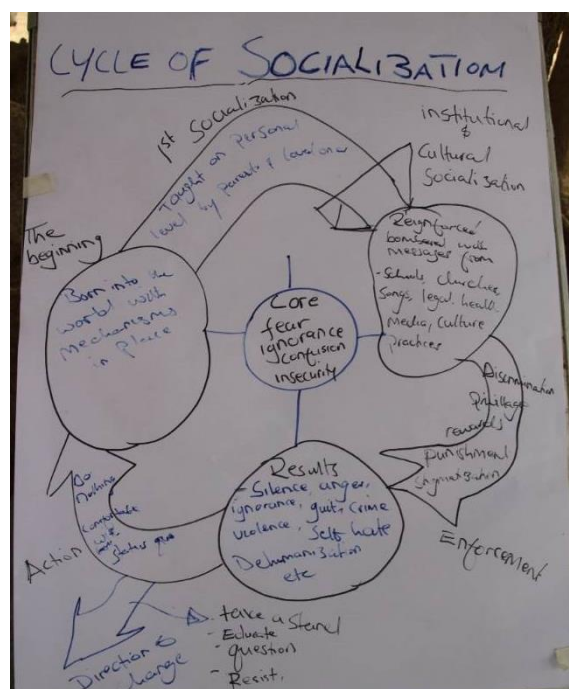 CYCLE OF SOCIALIZATION
1st Socialization
Taught on personal
level by parents & loved ones
institutional
&
Cultural
Socialisation
The
beginning
Born into the
world with
mechanisms
in place
Core
fear
ignorance
confusion
insecurity
Reignforced
bombered with
messages from
- Schools, churches,
Songs, legal, health
Media, culture
practices
Discrimination
privillage
rewards
punishment
stigmatization
Enforcement
Results
- Silence, anger,
ignorance, guilt, crime
violence, Self hate
Dehumanization
etc
Action
Do
nothing
comfortable
with
status quo
Direction to
change
take a stand
- Educate
- question
- Resist.